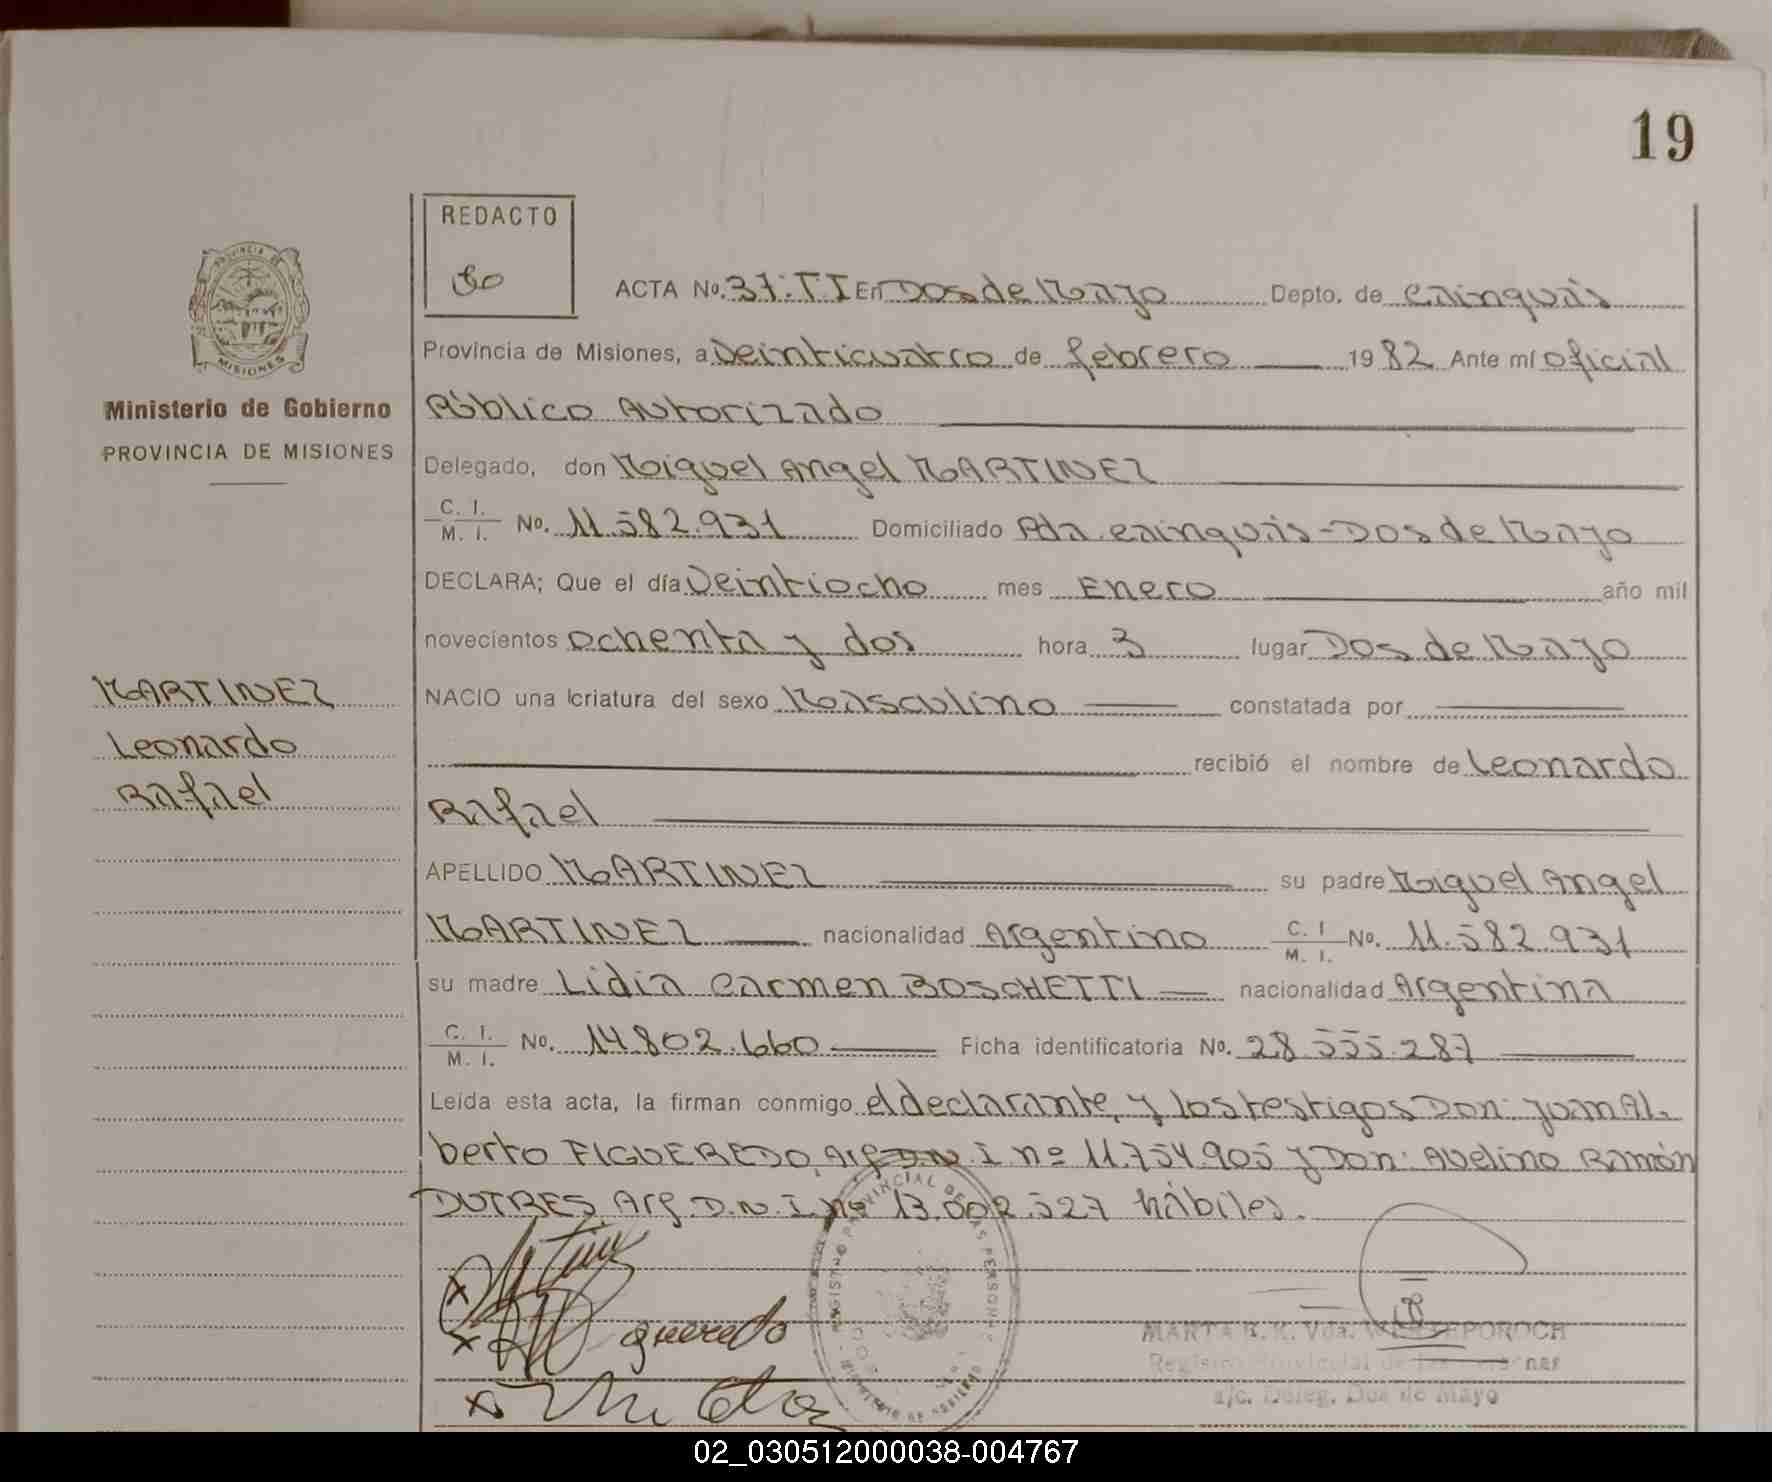 19
REDACTO
ACTA No. 37. T I En Dos de Mayo Depto. de Cainguás
Provincia de Misiones, a Veinticuatro de febrero 1982 Ante mí oficial
Ministerio de Gobierno
Público Autorizado
PROVINCIA DE MISIONES
Delegado, don Miguel Angel MARTINEZ
C. I. M. I. No. 11.582.931 Domiciliado Pda. Cainguás-Dos de Mayo
DECLARA; Que el día Veintiocho mes Enero año mil
novecientos ochenta y dos hora 3 lugar Dos de Mayo
MARTINEZ
Leonardo
Rafael
NACIO una criatura del sexo Masculino constatada por
recibió el nombre de Leonardo
Rafael
APELLIDO MARTINEZ su padre Miguel Angel
MARTINEZ nacionalidad Argentino C. I M. I. No. 11.582.931
su madre Lidia Carmen BOSCHETTI nacionalidad Argentina
C. I. M. I. No. 14.802.660 Ficha identificatoria No. 28.555.287
Leída esta acta, la firman conmigo el declarante, y los testigos Don: Juan Al-
berto FIGUEREDO, Arg. D.N.I. nº 11.754.905 y Don: Avelino Ramón
DUTRES Arg. D.N.I. nº 13.002.527 hábiles.
REGISTRO PROVINCIAL DE LAS PERSONAS
Registro Provincial de las Personas
a/c. Deleg. Dos de Mayo
02_030512000038-004767